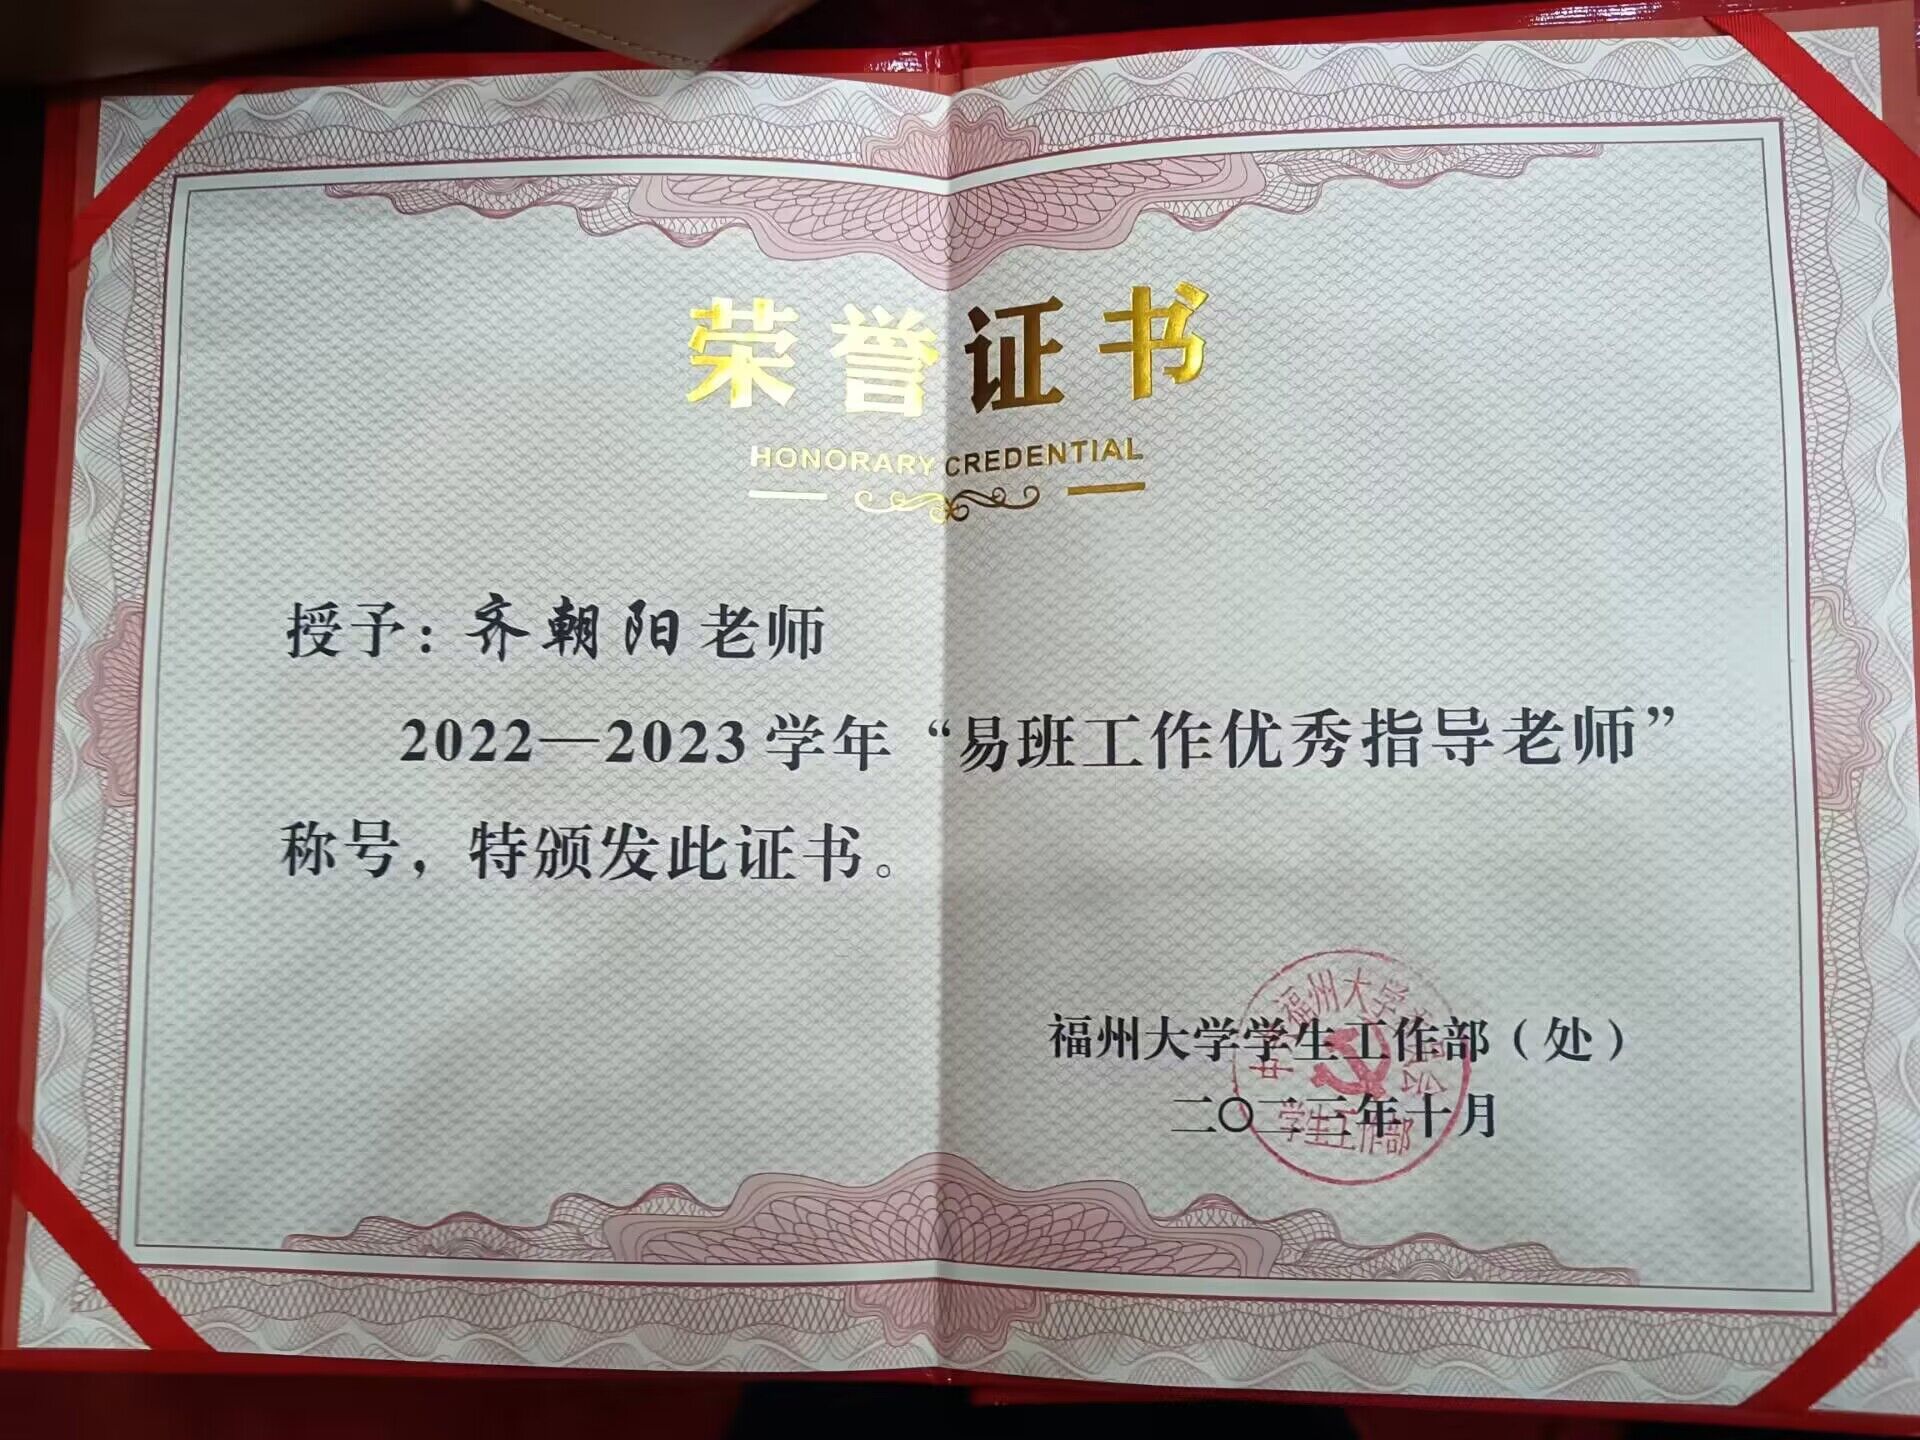 荣誉证书
HONORARY CREDENTIAL
授予：齐朝阳老师
2022—2023学年“易班工作优秀指导老师”
称号，特颁发此证书。
福州大学学生工作部（处）
二〇二三年十月
中共福州大学委员会
学生工作部